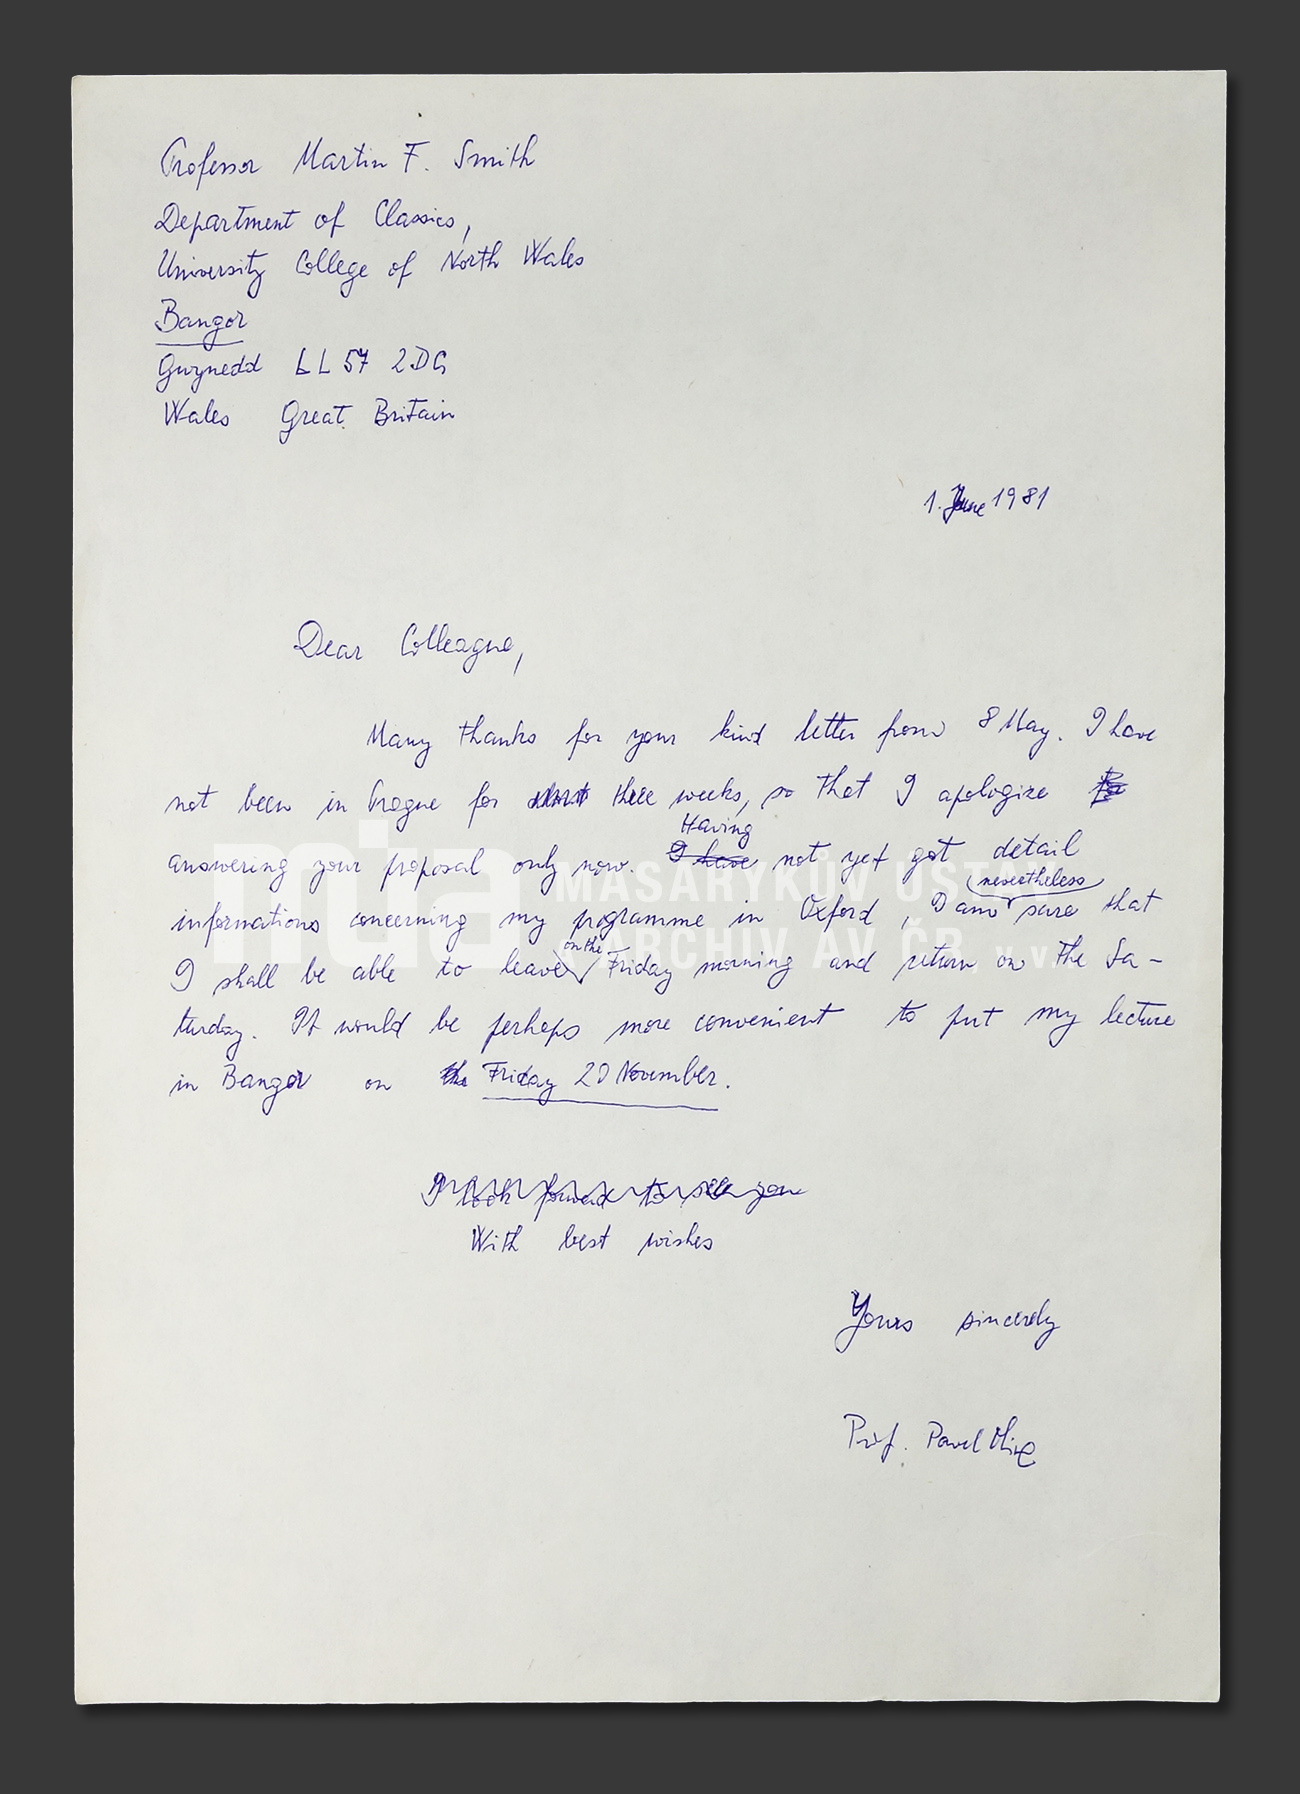 Professor Martin F. Smith
Department of Classics,
University College of North Wales
Bangor
Gwynedd LL 57 2DG
Wales Great Britain
1. June 1981
Dear Colleague,
Many thanks for your kind letter from 8 May. I have
not been in Prague for three weeks, so that I apologize
answering your proposal only now. I have Having not yet got detail
informations concerning my programme in Oxford, I am nevertheless sure that
I shall be able to leave on the Friday morning and return on the Sa-
turday. It would be perhaps more convenient to put my lecture
in Bangor on the Friday 20 November.
I look forward to see you
With best wishes
Yours sincerely
Prof. Pavel Oliva
MASARYKŮV ÚSTAV
A ARCHIV AV ČR, v.v.